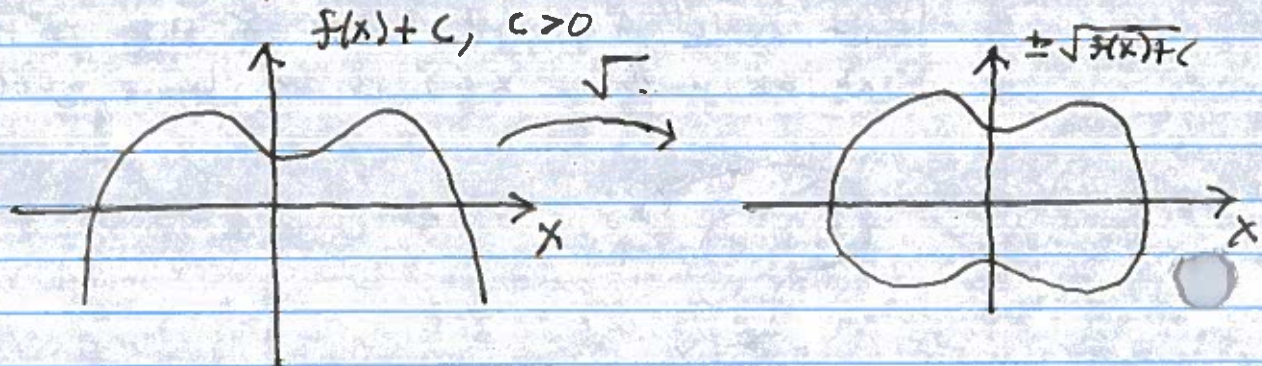 f(x) + C, C > 0
√.
± √f(x)+C
X
X